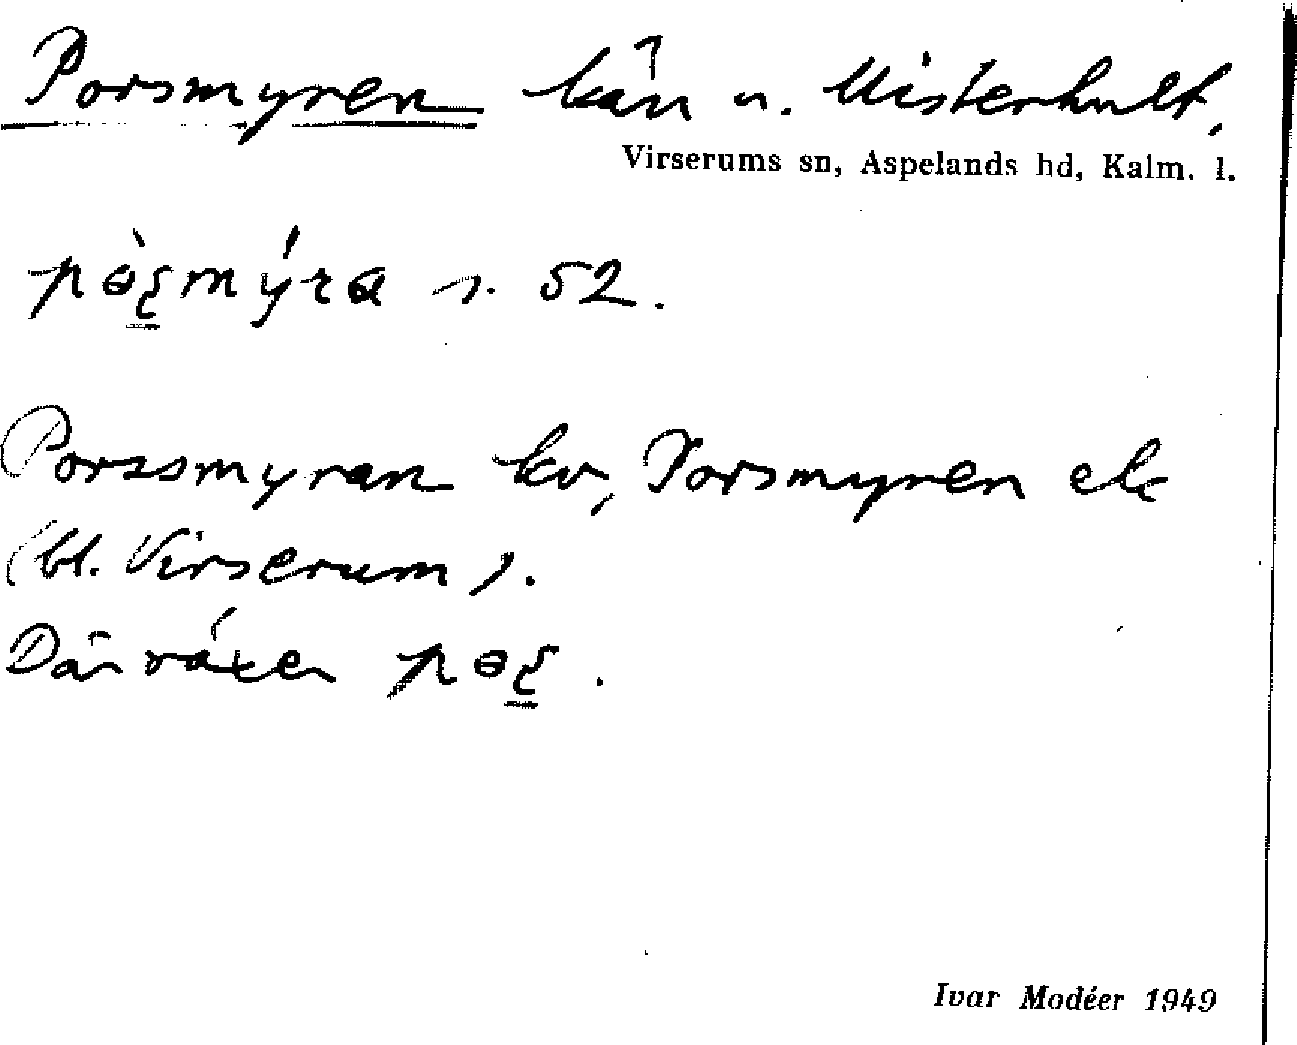 Porsmyren kärr u. Misterhult,
Virserums sn, Aspelands hd, Kalm. l.
s. 52.
Porssmyran kv, Porsmyren ek
(bl. Virserum).
Där växer
Ivar Modéer 1949